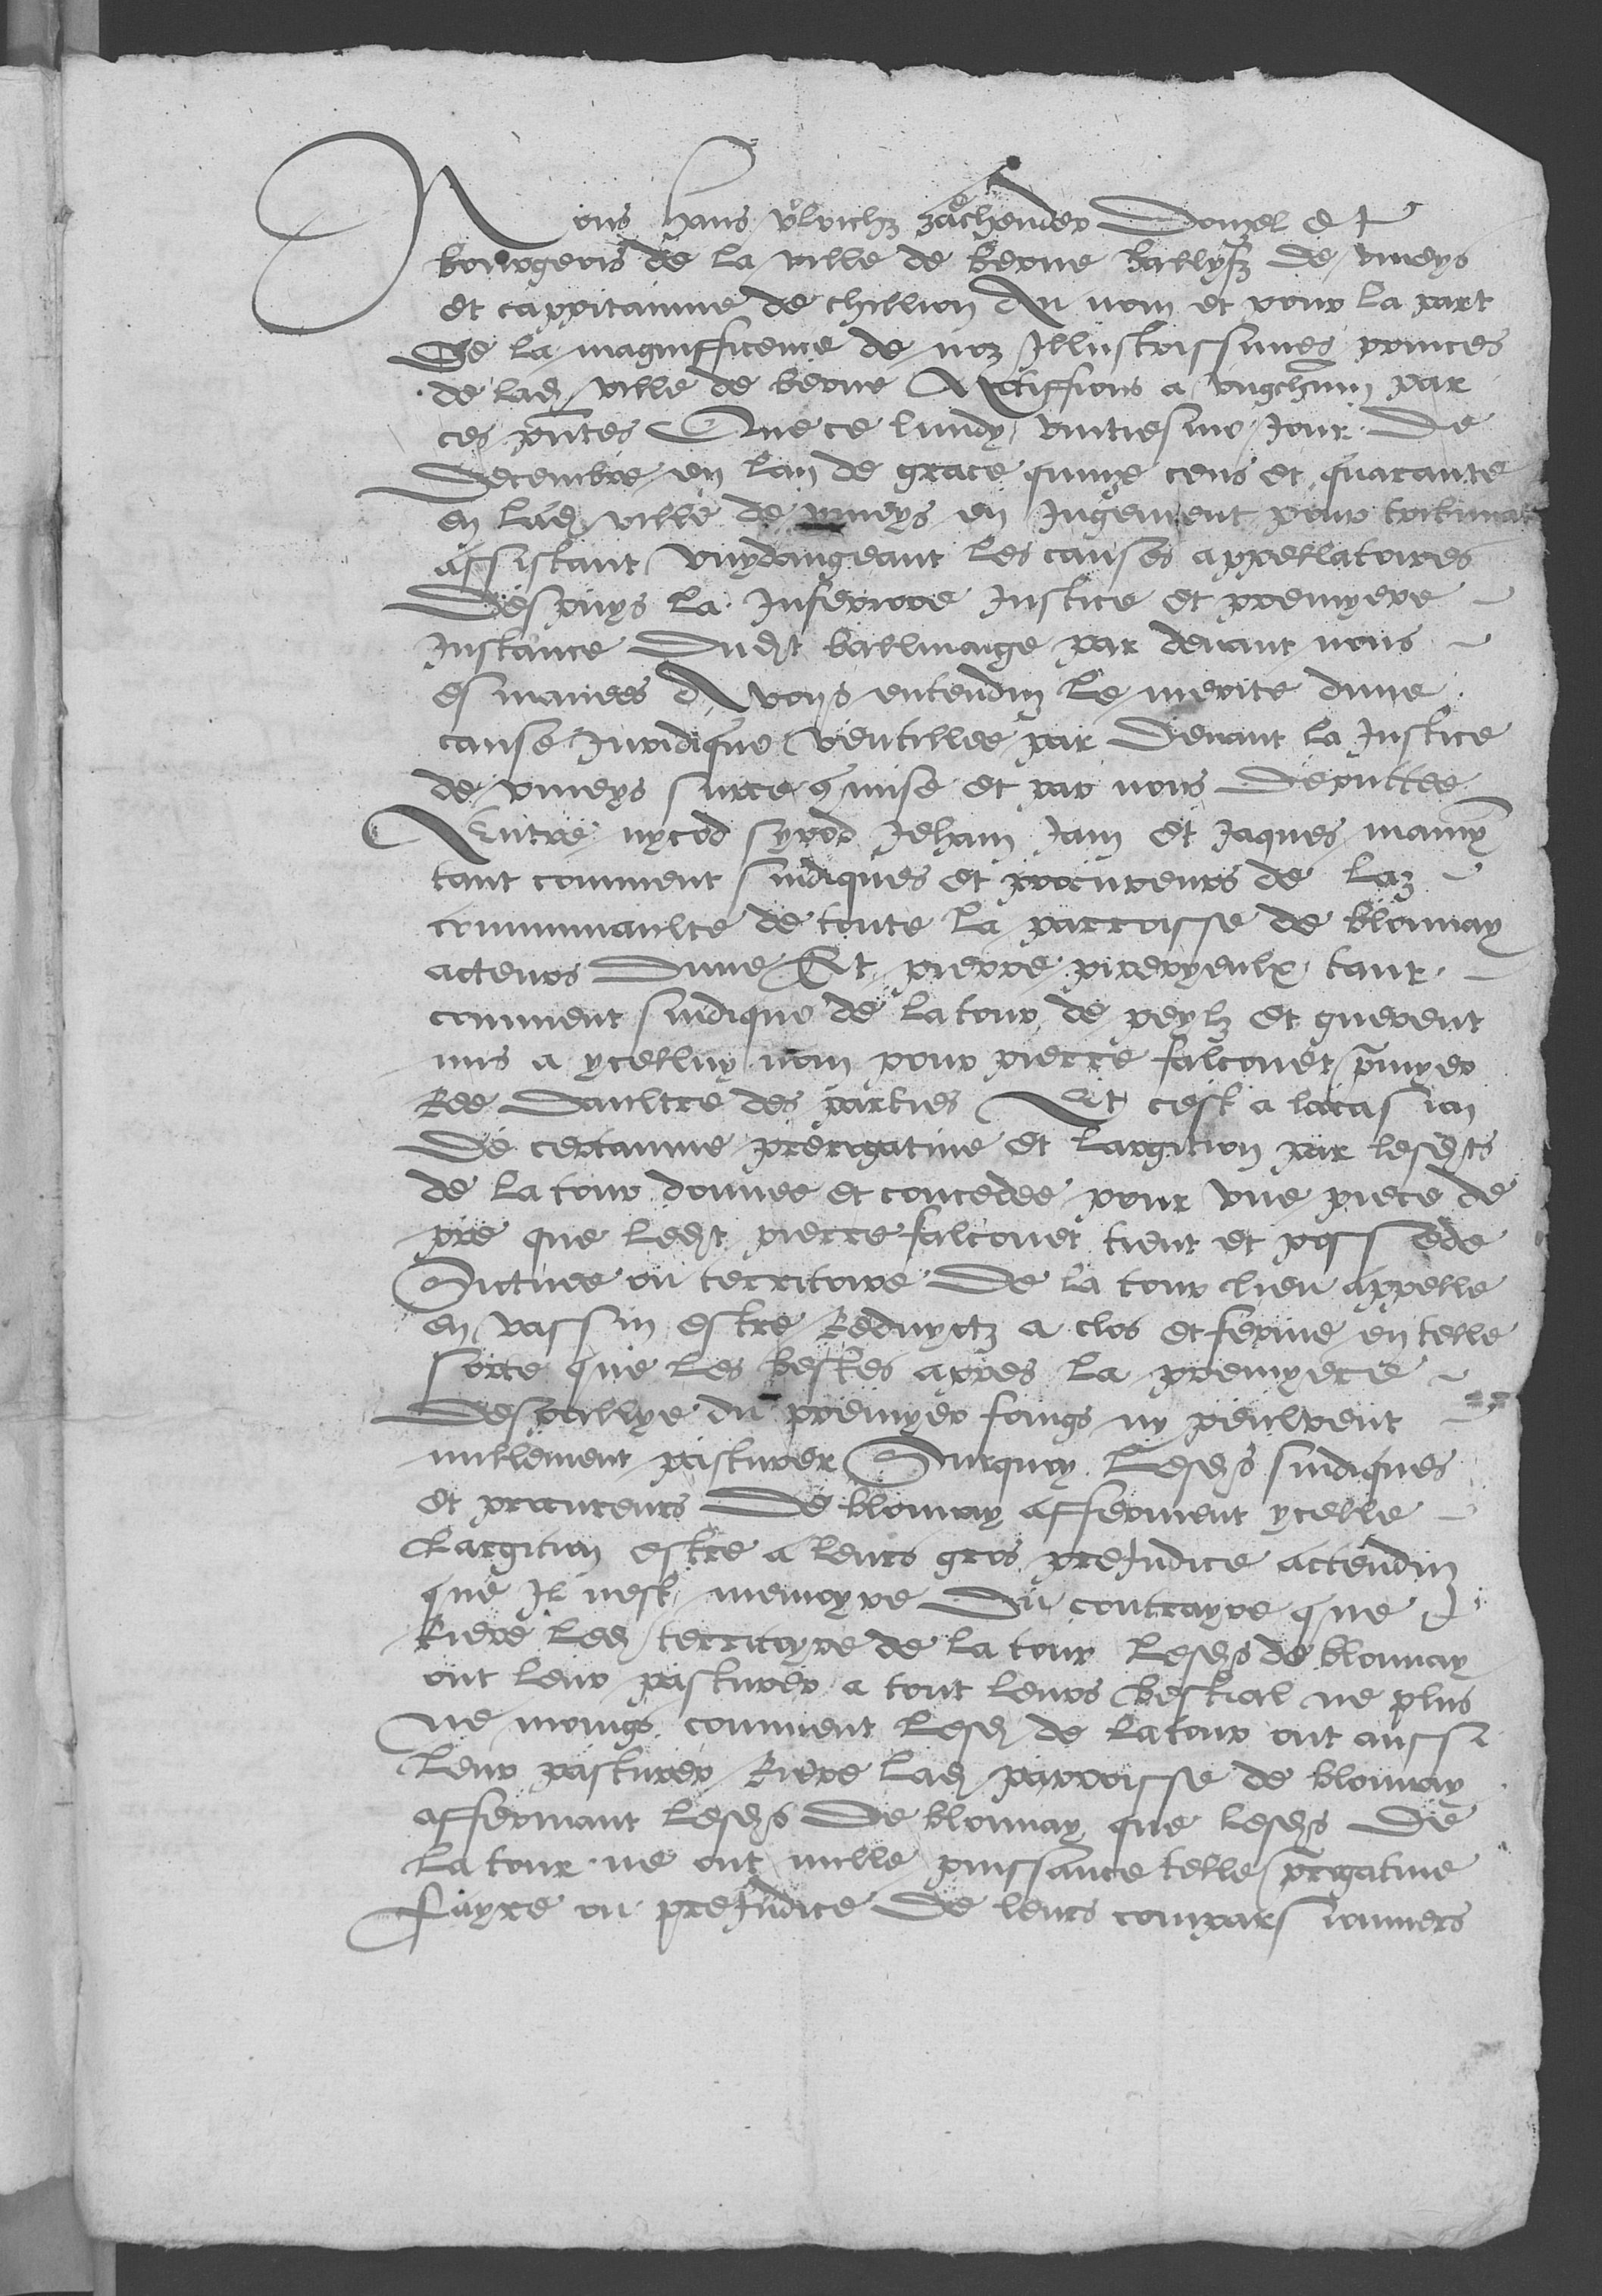 Nous hans ulrichz zächender Donzel et
bourgeois de la ville de berne ballyfz de viveys
et cappitainne de chillion Au nom et pour la part
De la magnifficence de noz Illustrissimes princes
de lad ville de berne Actiffions a ungchun par
ces pntes Que ce lundy vintiesme Jour De
Decembre en lan de grace quinze cens et quarante
en lad ville de viveys en Jugement pour tribunal
assistant vuydangeant les causes appellatoires
Despuys la Inferiore Justice et premyere
Instance Dudt balliviaige par devant nous
esmanees Avons entenduz le merite dune
cause Juridique ventillee par Devant la Justice
de viveys surce comise et par nous Deputtee
Entre nycod syrod Jehan Jan et Jaques mamyn
tant comment sindiques et procureurs de laz
communaulte de toute la parroisse de blonnay
acteurs Dune Et pierre pireryeulx tant
comment sindique de la tour de peylz et guerent
mis a ycelluy nom pour pierre falconet pmyer
Ree Daultre des parties Et cest a locasion
De certainne prerogative et largition par lesdts
de la tour donnee et concedee pour une piece de
pre que ledt pierre falconet tient et possede
Sictuee ou territoire De la tour lieu appelle
en vassin estre Reduyctz a clos et ferme en telle
sorte que les bestes apres la premyere
Despullye du premyer foings ny peulvent
nullement pasturer Surquoy lesds sindiques
et procureurs De blonnay afferment ycelle
Largition estre a leurs gros preJudice actenduz
que Il nest memoyre Du contrayre que
Riere led territoyre de la tour lesds de blonnay
ont leur pasturer a tout leurs bestial ne plus
ne moings comment lesd de la tour ont aussi
leur pasturer Riere lad parroisse de blonnay
affermant lesds De blonnay que lesds De
la tour ne ont nulle puissance telle prgative
Fayre ou preJudice De leurs comparsionniers